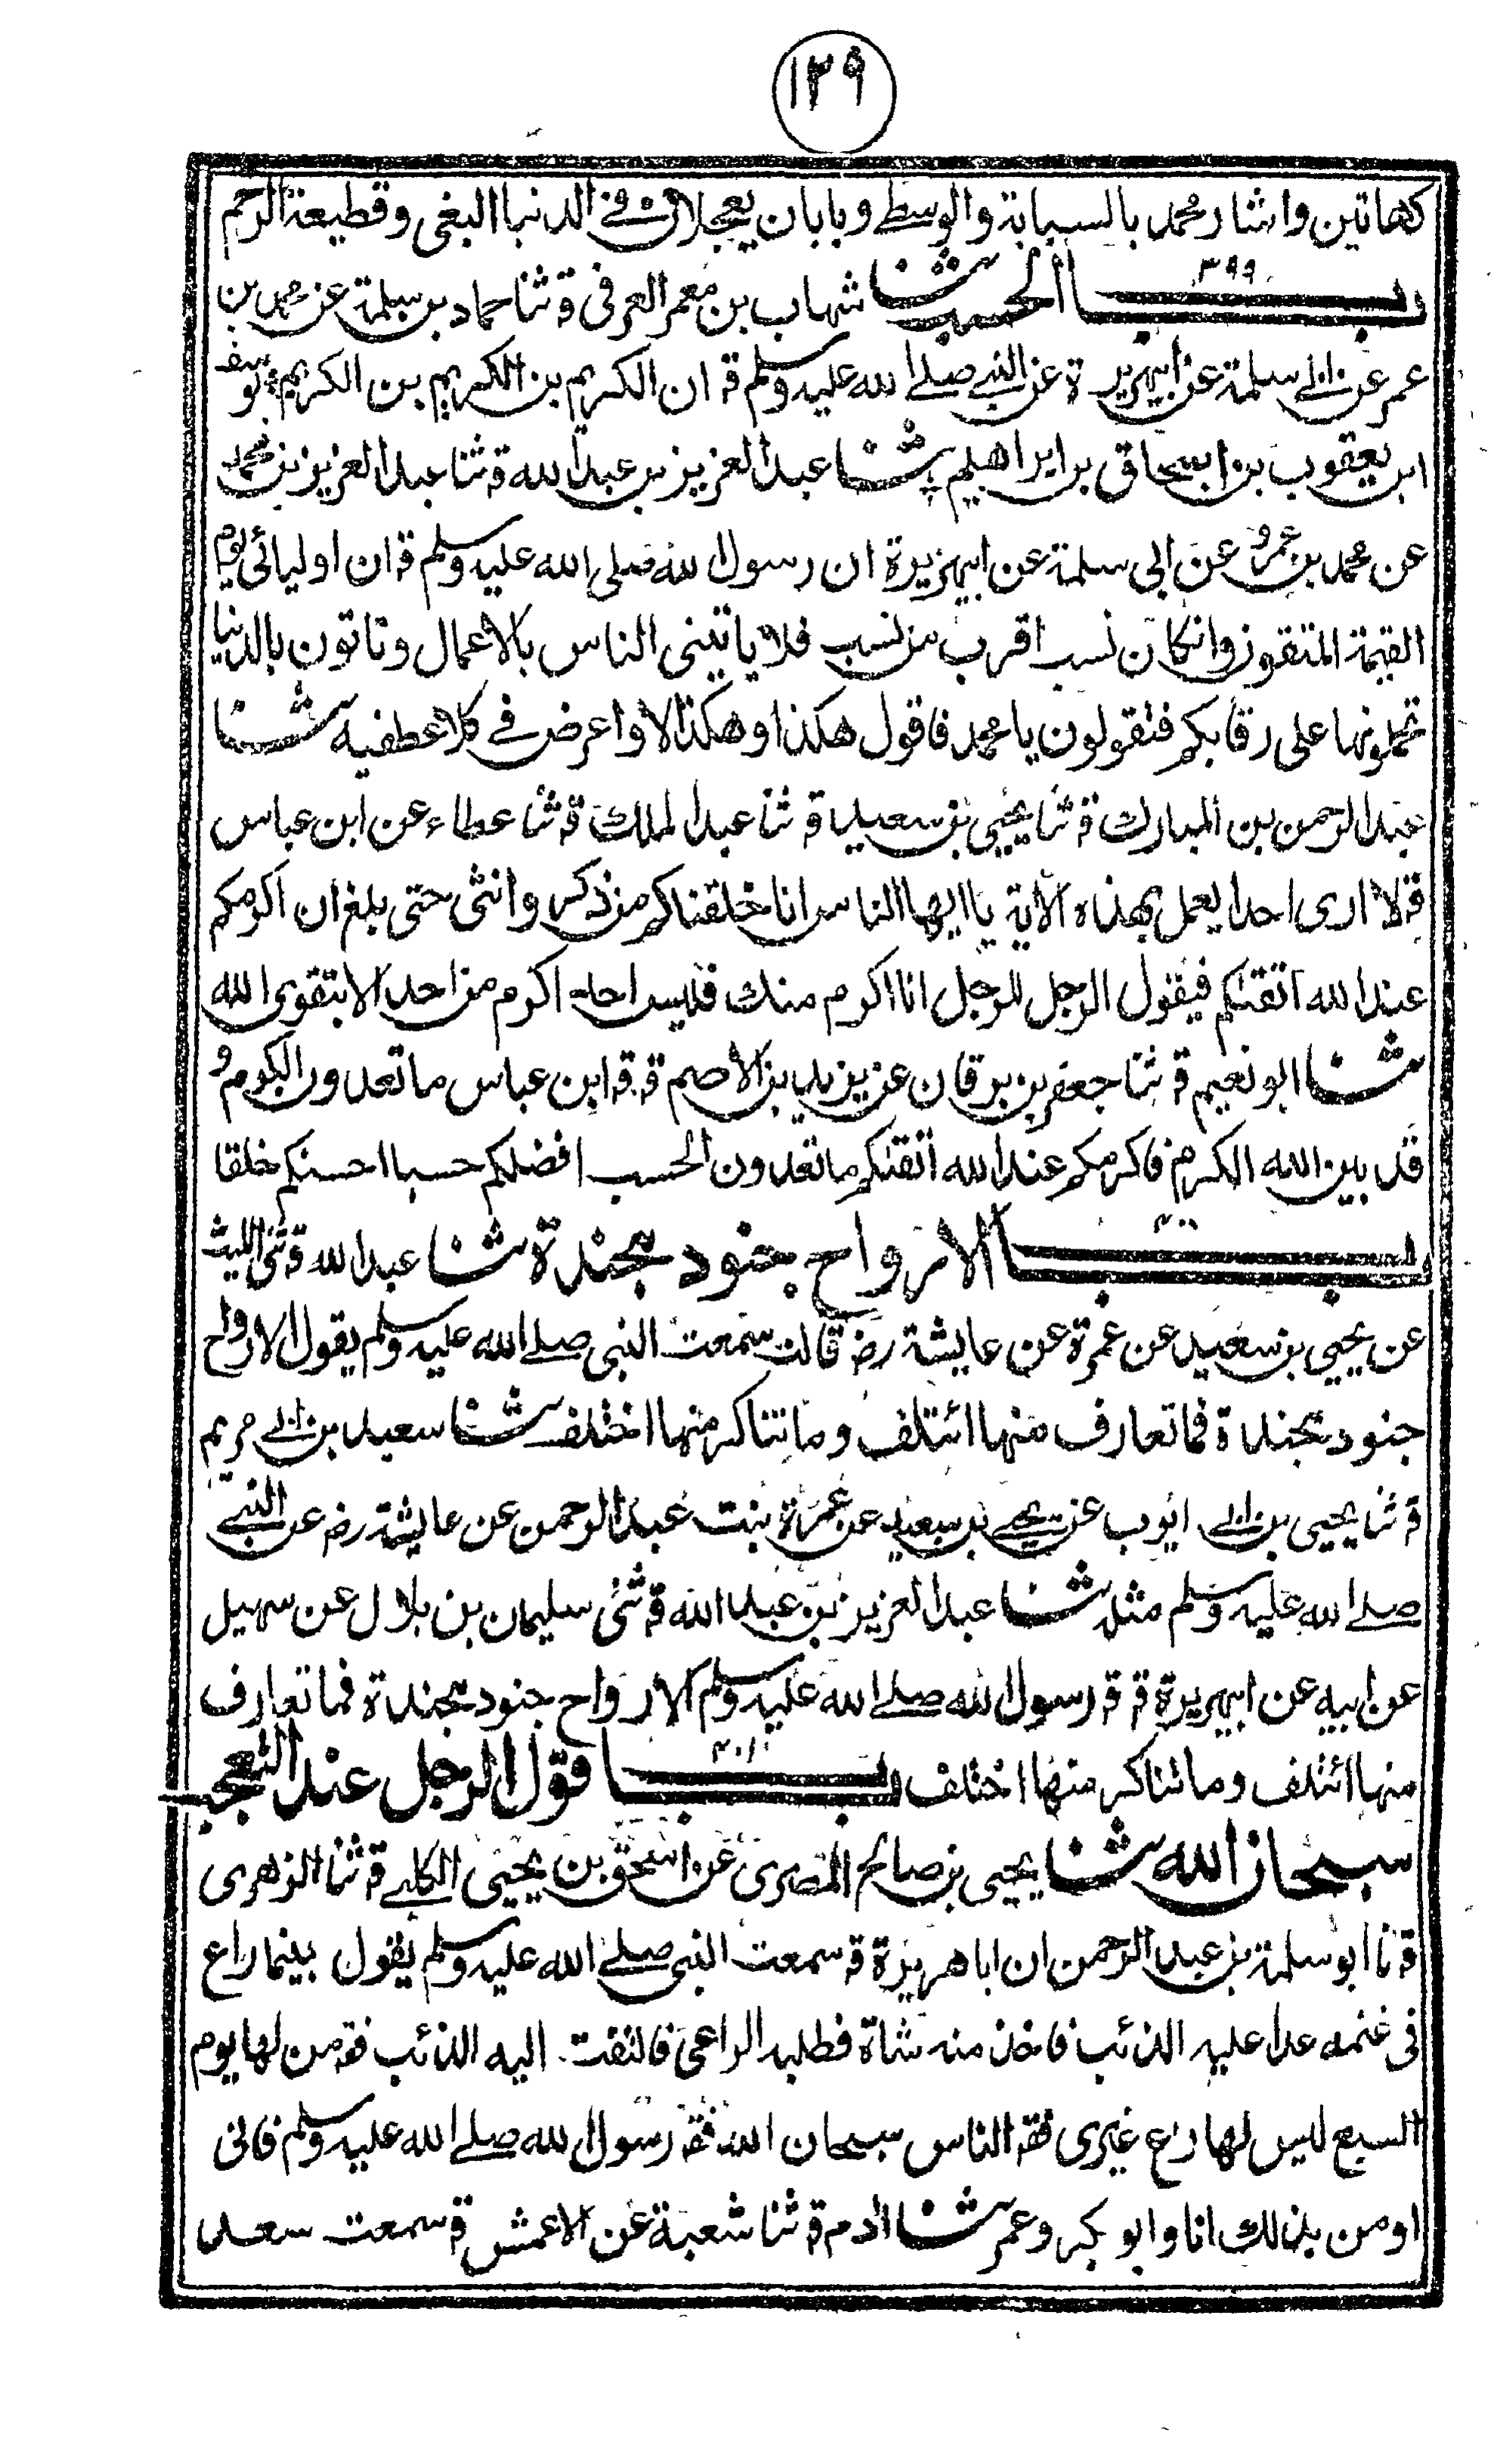 ١٢٩
كهاتين واشار محمد بالسبابة والوسطے وبابان يعجلان فے الدنيا البغى وقطيعة الرحم
٣٩٩
بــاب الحسب ثنا شهاب بن معمر العوفى قـ ثنا حماد بن سلمة عن محمد بن
عمر عن ابے سلمة عن ابيهريرة عن النبے صلے الله عليه وسلم قـ ان الكريم بن الكريم بن الكريم يوسف
ابن يعقوب بن اسحاق بن ابراهيم ثنا عبد العزيز بن عبد الله قـ ثنا عبد العزيز بن محمد
عن محمد بن عمرو عن ابى سلمة عن ابيهريرة ان رسول الله صلى الله عليه وسلم قـ ان اوليائى يوم
القيمة المتقون وانكان نسب اقرب من نسب فلا ياتينى الناس بالاعمال وتاتون بالدنيا
تحملونها على رقابكم فتقولون يا محمد فاقول هكذا وهكذا لا واعرض فے كلا عطفيه ثنا
عبد الرحمن بن المبارك قـ ثنا يحيى بن سعيد قـ ثنا عبد الملك قـ ثنا عطاء عن ابن عباس
قـ لا ارى احدا يعمل بهذه الآية يا ايها الناس انا خلقناكم من ذكر وانثى حتى بلغ ان اكرمكم
عند الله اتقىكم فيقول الرجل للرجل انا اكرم منك فليس احد اكرم من احد الا بتقوى الله
ثنا ابو نعيم قـ ثنا جعفر بن برقان عن يزيد بن الاصم قـ قـ ابن عباس ما تعدون الكرم و
قد بين الله الكرم فاكرمكم عند الله اتقىكم ما تعدون الحسب افضلكم حسبا احسنكم خلقا
٤٠٠
بــاب الارواح جنود مجندة ثنا عبد الله قـ ثنى الليث
عن يحيى بن سعيد عن عمرة عن عايشة رضـ قالت سمعت النبى صلے الله عليه وسلم يقول الارواح
جنود مجندة فما تعارف منها ائتلف وما تناكر منها اختلف ثنا سعيد بن ابے مريم
قـ ثنا يحيى بن ابے ايوب عن يحيے بن سعيد عن عمرة بنت عبد الرحمن عن عايشة رضـ عن النبے
صلے الله عليه وسلم مثله ثنا عبد العزيز بن عبد الله قـ ثنى سليمان بن بلال عن سهيل
عن ابيه عن ابيهريرة قـ قـ رسول الله صلے الله عليه وسلم الارواح جنود مجندة فما تعارف
منها ائتلف وما تناكر منها اختلف ٤٠١ بــاب قول الرجل عند التعجب
سبحان الله ثنا يحيى بن صالح المصرى عن اسحق بن يحيى الكلبے قـ ثنا الزهرى
قـ نا ابو سلمة بن عبد الرحمن ان ابا هريرة قـ سمعت النبى صلے الله عليه وسلم يقول بينما راع
فى غنمه عدا عليه الذئب فاخذ منه شاة فطلبه الراعى فالتفت اليه الذئب فقـ من لها يوم
السبع ليس لها راع غيرى فقـ الناس سبحان الله فقـ رسول الله صلے الله عليه وسلم فانى
اومن بذلك انا وابو بكر وعمر ثنا ادم قـ ثنا شعبة عن الاعمش قـ سمعت سعد